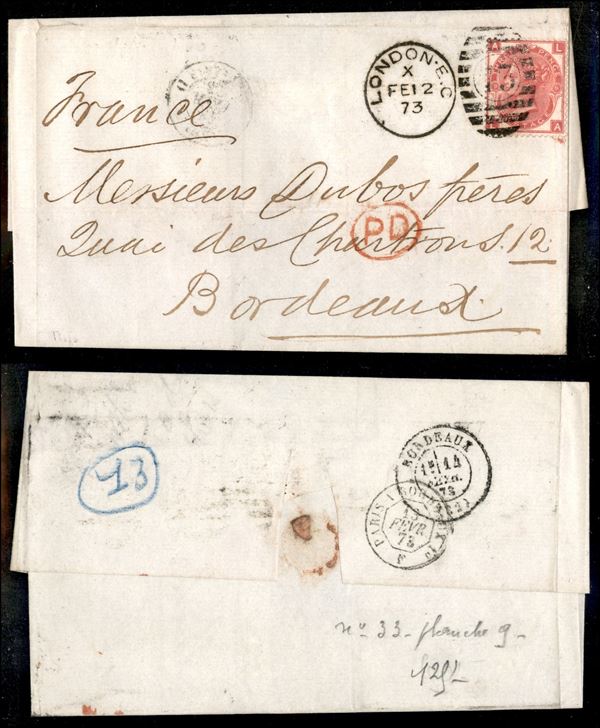 France
LONDON·E.C
X
FE 12
73
A L
L A
Messieurs Dubos frères
PD
Quai des Chartrons. 12
Bordeaux.
13
BORDEAUX
14
FEVR.
73
PARIS A BORDEAUX
13
FEVR
73
no 33 - planche 9 -